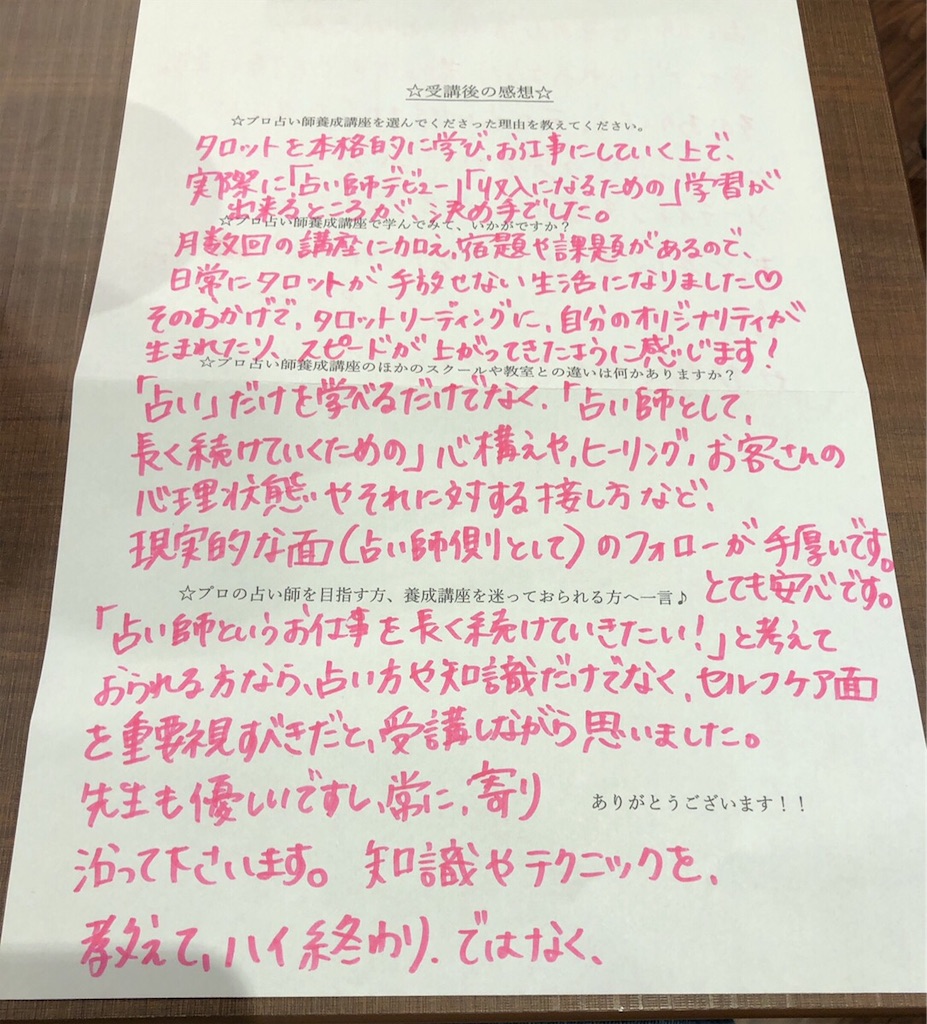 ☆受講後の感想☆
☆プロ占い師養成講座を選んでくださった理由を教えてください。
タロットを本格的に学び、お仕事にしていく上で、
実際に「占い師デビュー」「収入になるための」学習が
出来るところが、決め手でした。
☆プロ占い師養成講座で学んでみて、いかがですか？
月数回の講座に加え、宿題や課題があるので、
日常にタロットが手放せない生活になりました♡
そのおかげで、タロットリーディングに、自分のオリジナリティが
生まれたり、スピードが上がってきたように感じます！
☆プロ占い師養成講座のほかのスクールや教室との違いは何かありますか？
「占い」だけを学べるだけでなく、「占い師として、
長く続けていくための」心構えや、ヒーリング、お客さんの
心理状態やそれに対する接し方など、
現実的な面（占い師側として）のフォローが手厚いです。
とても安心です。
☆プロの占い師を目指す方、養成講座を迷っておられる方へ一言♪
「占い師というお仕事を長く続けていきたい！」と考えて
おられる方なら、占い方や知識だけでなく、セルフケア面
を重要視すべきだと、受講しながら思いました。
先生も優しいですし、常に、寄り
ありがとうございます！！
沿って下さいます。知識やテクニックを、
教えて、ハイ終わり、ではなく、